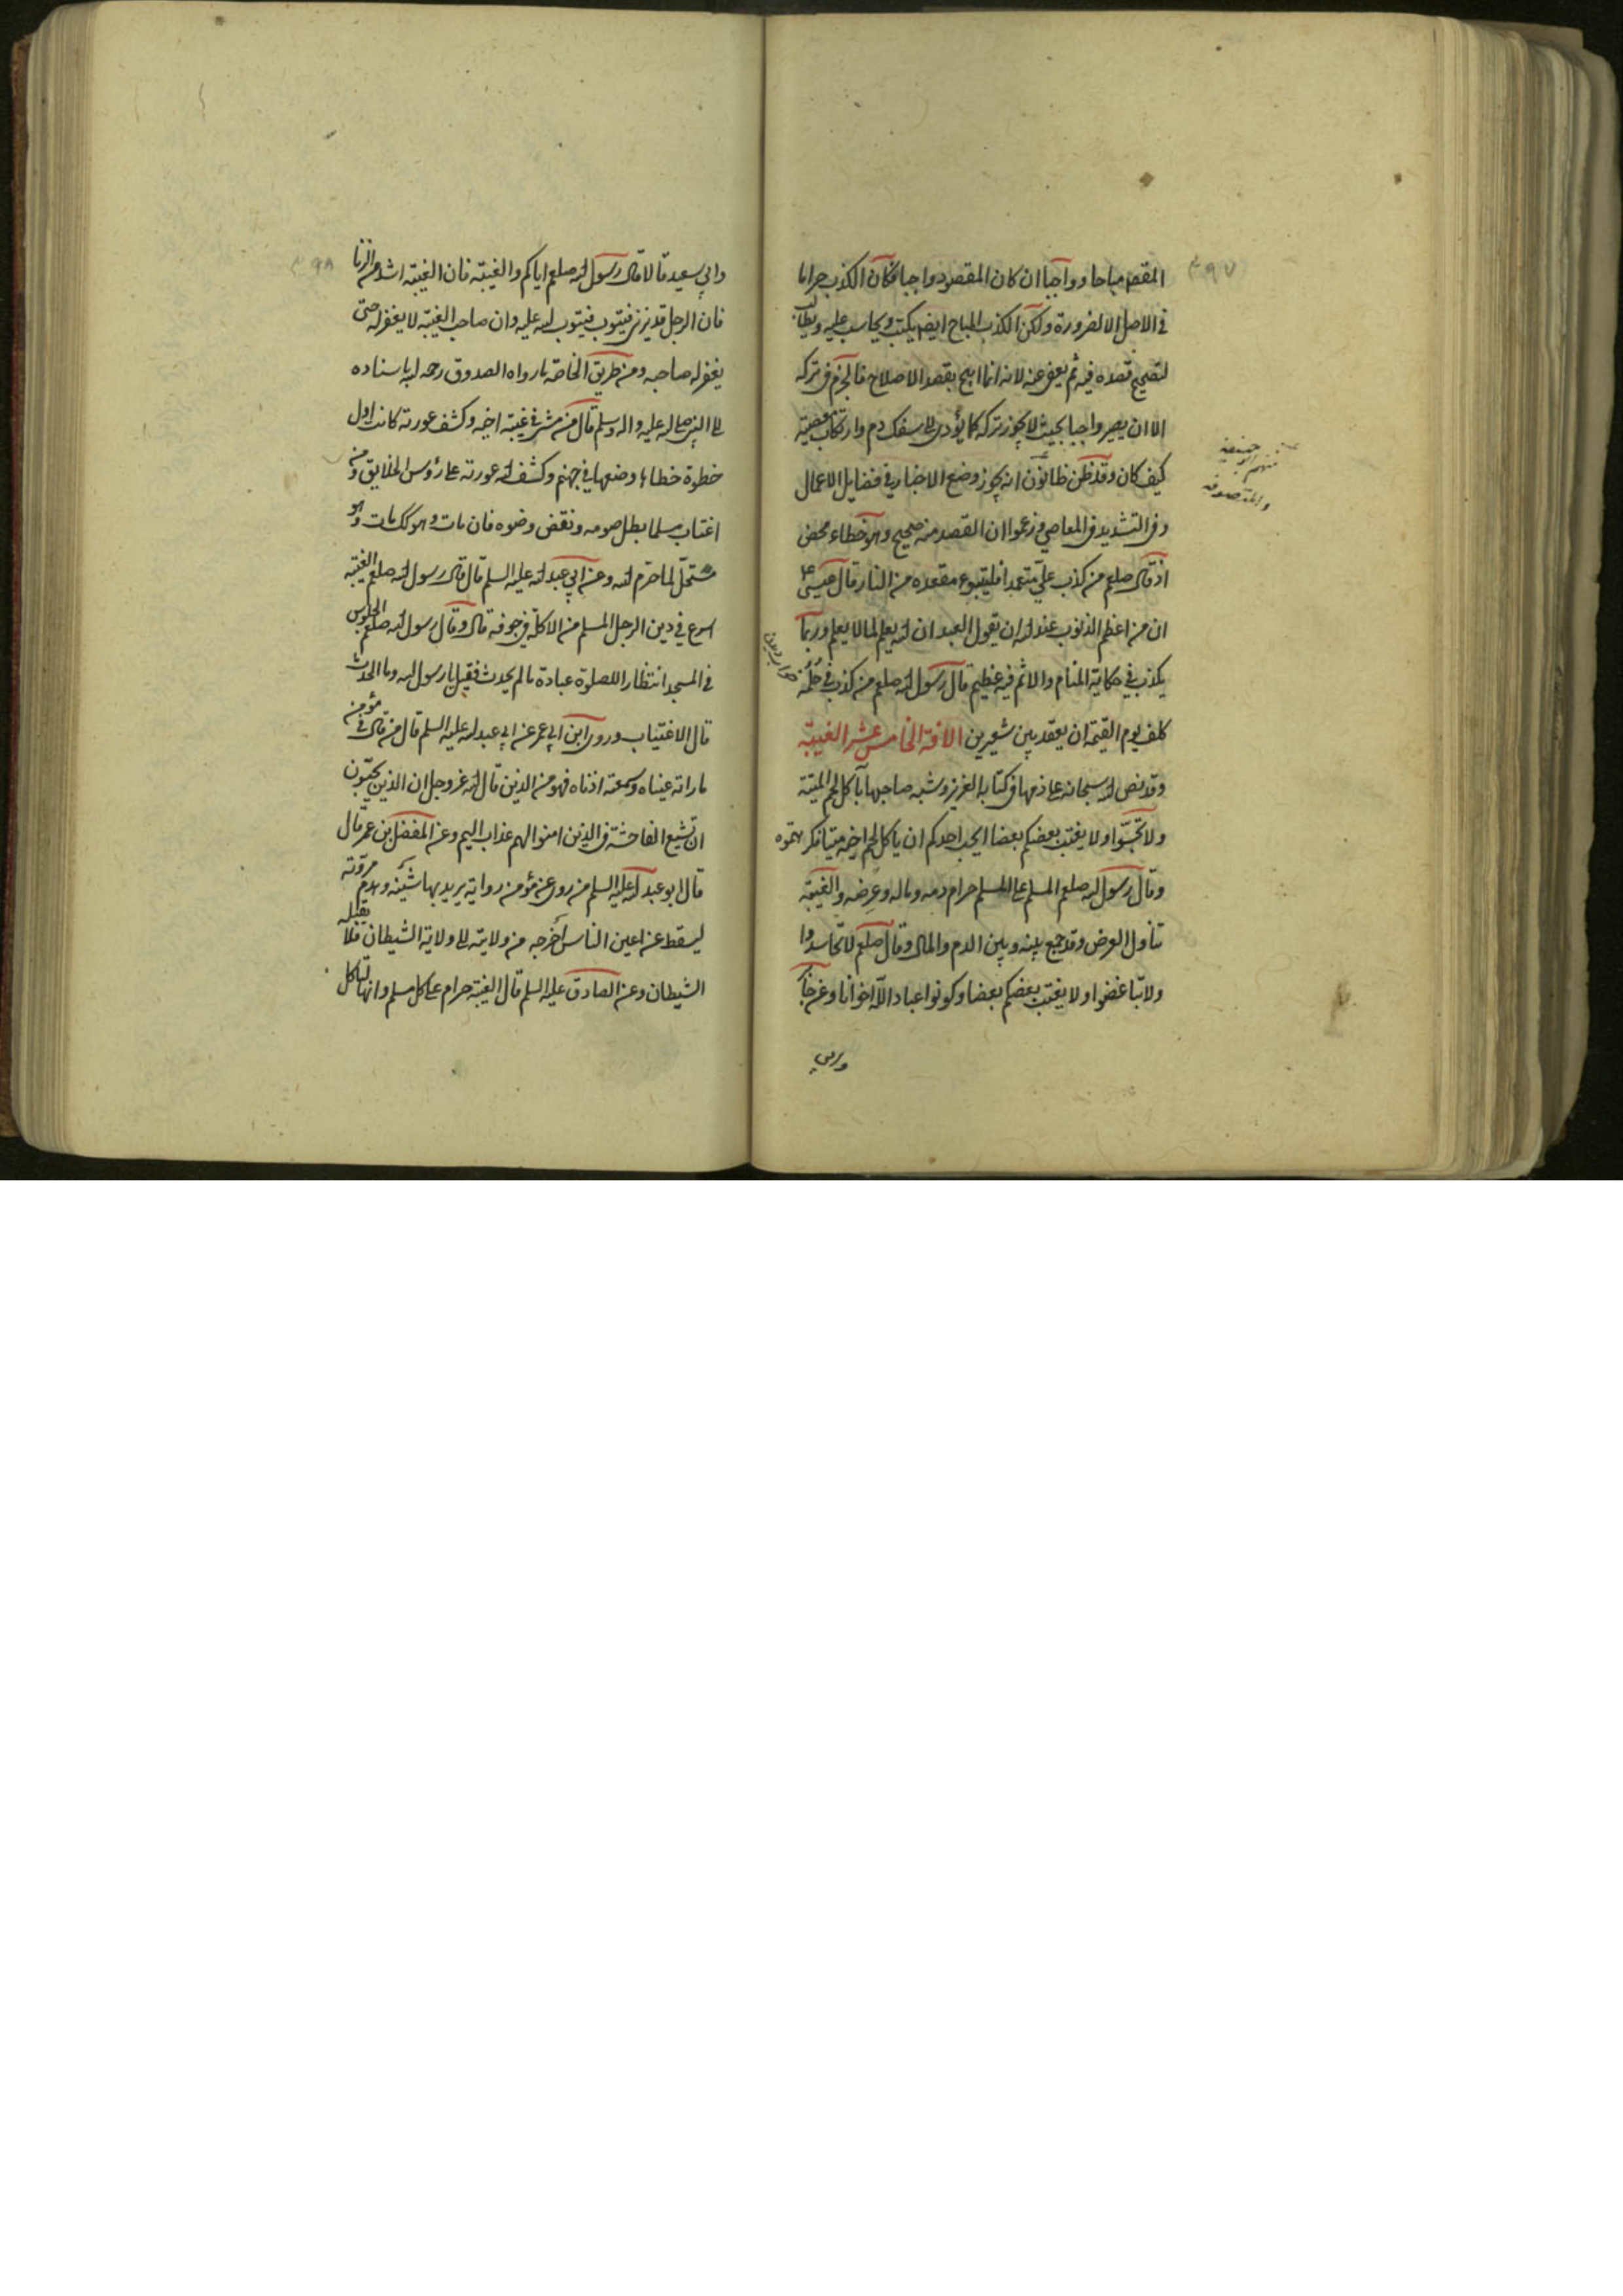 ٣٩٧
المقصد مباحا وواجبا ان كان المقصود واجبا فكان الكذب حراما
في الاصل الا لضرورة ولكن الكذب المباح ايضا يكتب ويحاسب عليه ويطالب
لتصحيح قصده فيه ثم يعفى عنه لانه انما ابيح بقصد الاصلاح فالحزم في تركه
الا ان يصير واجبا بحيث لا يجوز تركه كما يؤدى الى سفك دم وارتكاب معصية
كيف كان وقد ظن ظانون انه يجوز وضع الاخبار في فضايل الاعمال
وفي التشديد في المعاصي وزعموا ان القصد منه صحيح وهو خطاء محض
اذ قال صلعم من كذب علي متعمدا فليتبوء مقعده من النار قال عيسى ع
ان من اعظم الذنوب عند الله ان يقول العبد ان الله يعلم لما لا يعلم وربما
يكذب في حكاية المنام والاثم فيه عظيم قال رسول الله صلعم من كذب في حلمه
كلف يوم القيمة ان يعقد بين شعيرتين الافة الخامس عشر الغيبة
وقد نص الله سبحانه على ذمها في كتابه العزيز وشبه صاحبها بآكل لحم الميتة
ولا تجسسوا ولا يغتب بعضكم بعضا ايحب احدكم ان ياكل لحم اخيه ميتا فكرهتموه
وقال رسول الله صلعم المسلم على المسلم حرام دمه وماله وعرضه والغيبة
تناول العرض وقد جمع بينه وبين الدم والمال وقال صلعم لا تحاسدوا
ولا تباغضوا ولا يغتب بعضكم بعضا وكونوا عباد الله اخوانا وعن جابر
وابي
منهم ابو حنيفة
والمتصوفة
٣٩٨
وابي سعيد قالا قال رسول الله صلعم اياكم والغيبة فان الغيبة اشد من الزنا
فان الرجل قد يزني فيتوب فيتوب الله عليه وان صاحب الغيبة لا يغفر له حتى
يغفر له صاحبه ومن طريق الخاصة ما رواه الصدوق رحمه الله باسناده
الى النبي صلى الله عليه واله وسلم قال من مشى في غيبة اخيه وكشف عورته كانت اول
خطوة خطاها وضعها في جهنم وكشف الله عورته على رؤس الخلايق ومن
اغتاب مسلما بطل صومه ونقض وضوه فان مات وهو كك مات وهو
مستحل لما حرم الله وعن ابي عبد الله عليه السلم قال قال رسول الله صلعم الغيبة
اسرع في دين الرجل المسلم من الاكلة في جوفه قال وقال رسول الله صلعم الجلوس
في المسجد انتظارا للصلوة عبادة ما لم يحدث فقيل يا رسول الله وما الحدث
قال الاغتياب وروى ابن ابي عمير عن ابي عبد الله عليه السلم قال من قال في مؤمن
ما راته عيناه وسمعته اذناه فهو من الذين قال الله عز وجل ان الذين يحبون
ان تشيع الفاحشة في الذين امنوا لهم عذاب اليم وعن المفضل بن عمر قال
قال ابو عبد الله عليه السلم من روى عن مؤمن رواية يريد بها شينه وهدم مروته
ليسقط عن اعين الناس اخرجه من ولايته الى ولاية الشيطان فلا يقبله
الشيطان وعن الصادق عليه السلم قال الغيبة حرام على كل مسلم وانها لتاكل